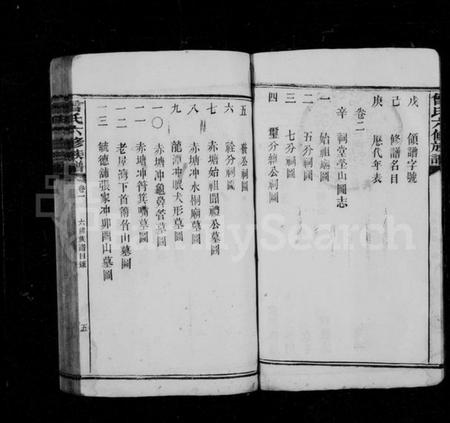 戊 領譜字號
己 修譜名目
庚 歷代年表
卷二
辛 祠堂塋山圖志
一 始祖廟圖
二 五分祠圖
三 七分祠圖
四 分緒公祠圖
五 公祠圖
六 分祠圖
七 赤塘始祖開禮公墓圖
八 赤塘冲水桐廟墓圖
九 龍潭冲眠犬形墓圖
一〇 赤塘冲龜鼻管墓圖
一一 赤塘冲筲箕嘴墓圖
一二 老屋灣下首筆竹山墓圖
一三 毓德舖張家冲卯酉山墓圖
氏六修族譜
卷一
六修族譜目錄
五
氏六修族譜
FamilySearch